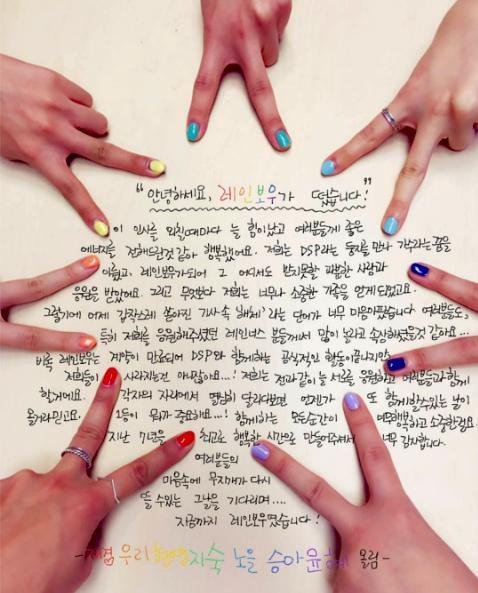 "안녕하세요, 레인보우가 떴습니다!"
이 인사를 외칠때마다 늘 힘이났고 여러분들께 좋은
에너지를 전해드린것 같아 행복했어요. 저희는 DSP라는 둥지를 만나 가수라는 꿈을
이뤘고, 레인보우가되어 그 어디서도 받지못할 과분한 사랑과
응원을 받았어요. 그리고 무엇보다 저희는 너무나 소중한 가족을 얻게되었고요.
그렇기에 어제 갑작스레 쏟아진 기사속 '해체'라는 단어가 너무 마음아팠습니다 여러분들도,
특히 저희를 응원해주셨던 레인너스 분들께서 많이 놀라고 속상하셨을것 같아요...
비록 레인보우는 계약이 만료되어 DSP와 함께하는 공식적인 활동이끝나지만
저희들이 사라지는건 아니잖아요...! 저희는 전과같이 늘 서로를 응원하고 여러분들과 함께
할거예요. 각자의 자리에서 열심히 달리다보면 언젠가 또 함께할수있는 날이
올거라믿고요. 1등이 뭐가 중요해요...! 함께하는 모든순간이 이렇게행복하고 소중한걸요.
지난 7년을 최고로 행복한 시간으로 만들어주셔서 너무 감사합니다.
여러분들의
마음속에 무지개가 다시
뜰 수있는 그날을 기다리며....
지금까지 레인보우였습니다!
-재경 우리 현영 지숙 노을 승아 윤혜 올림-